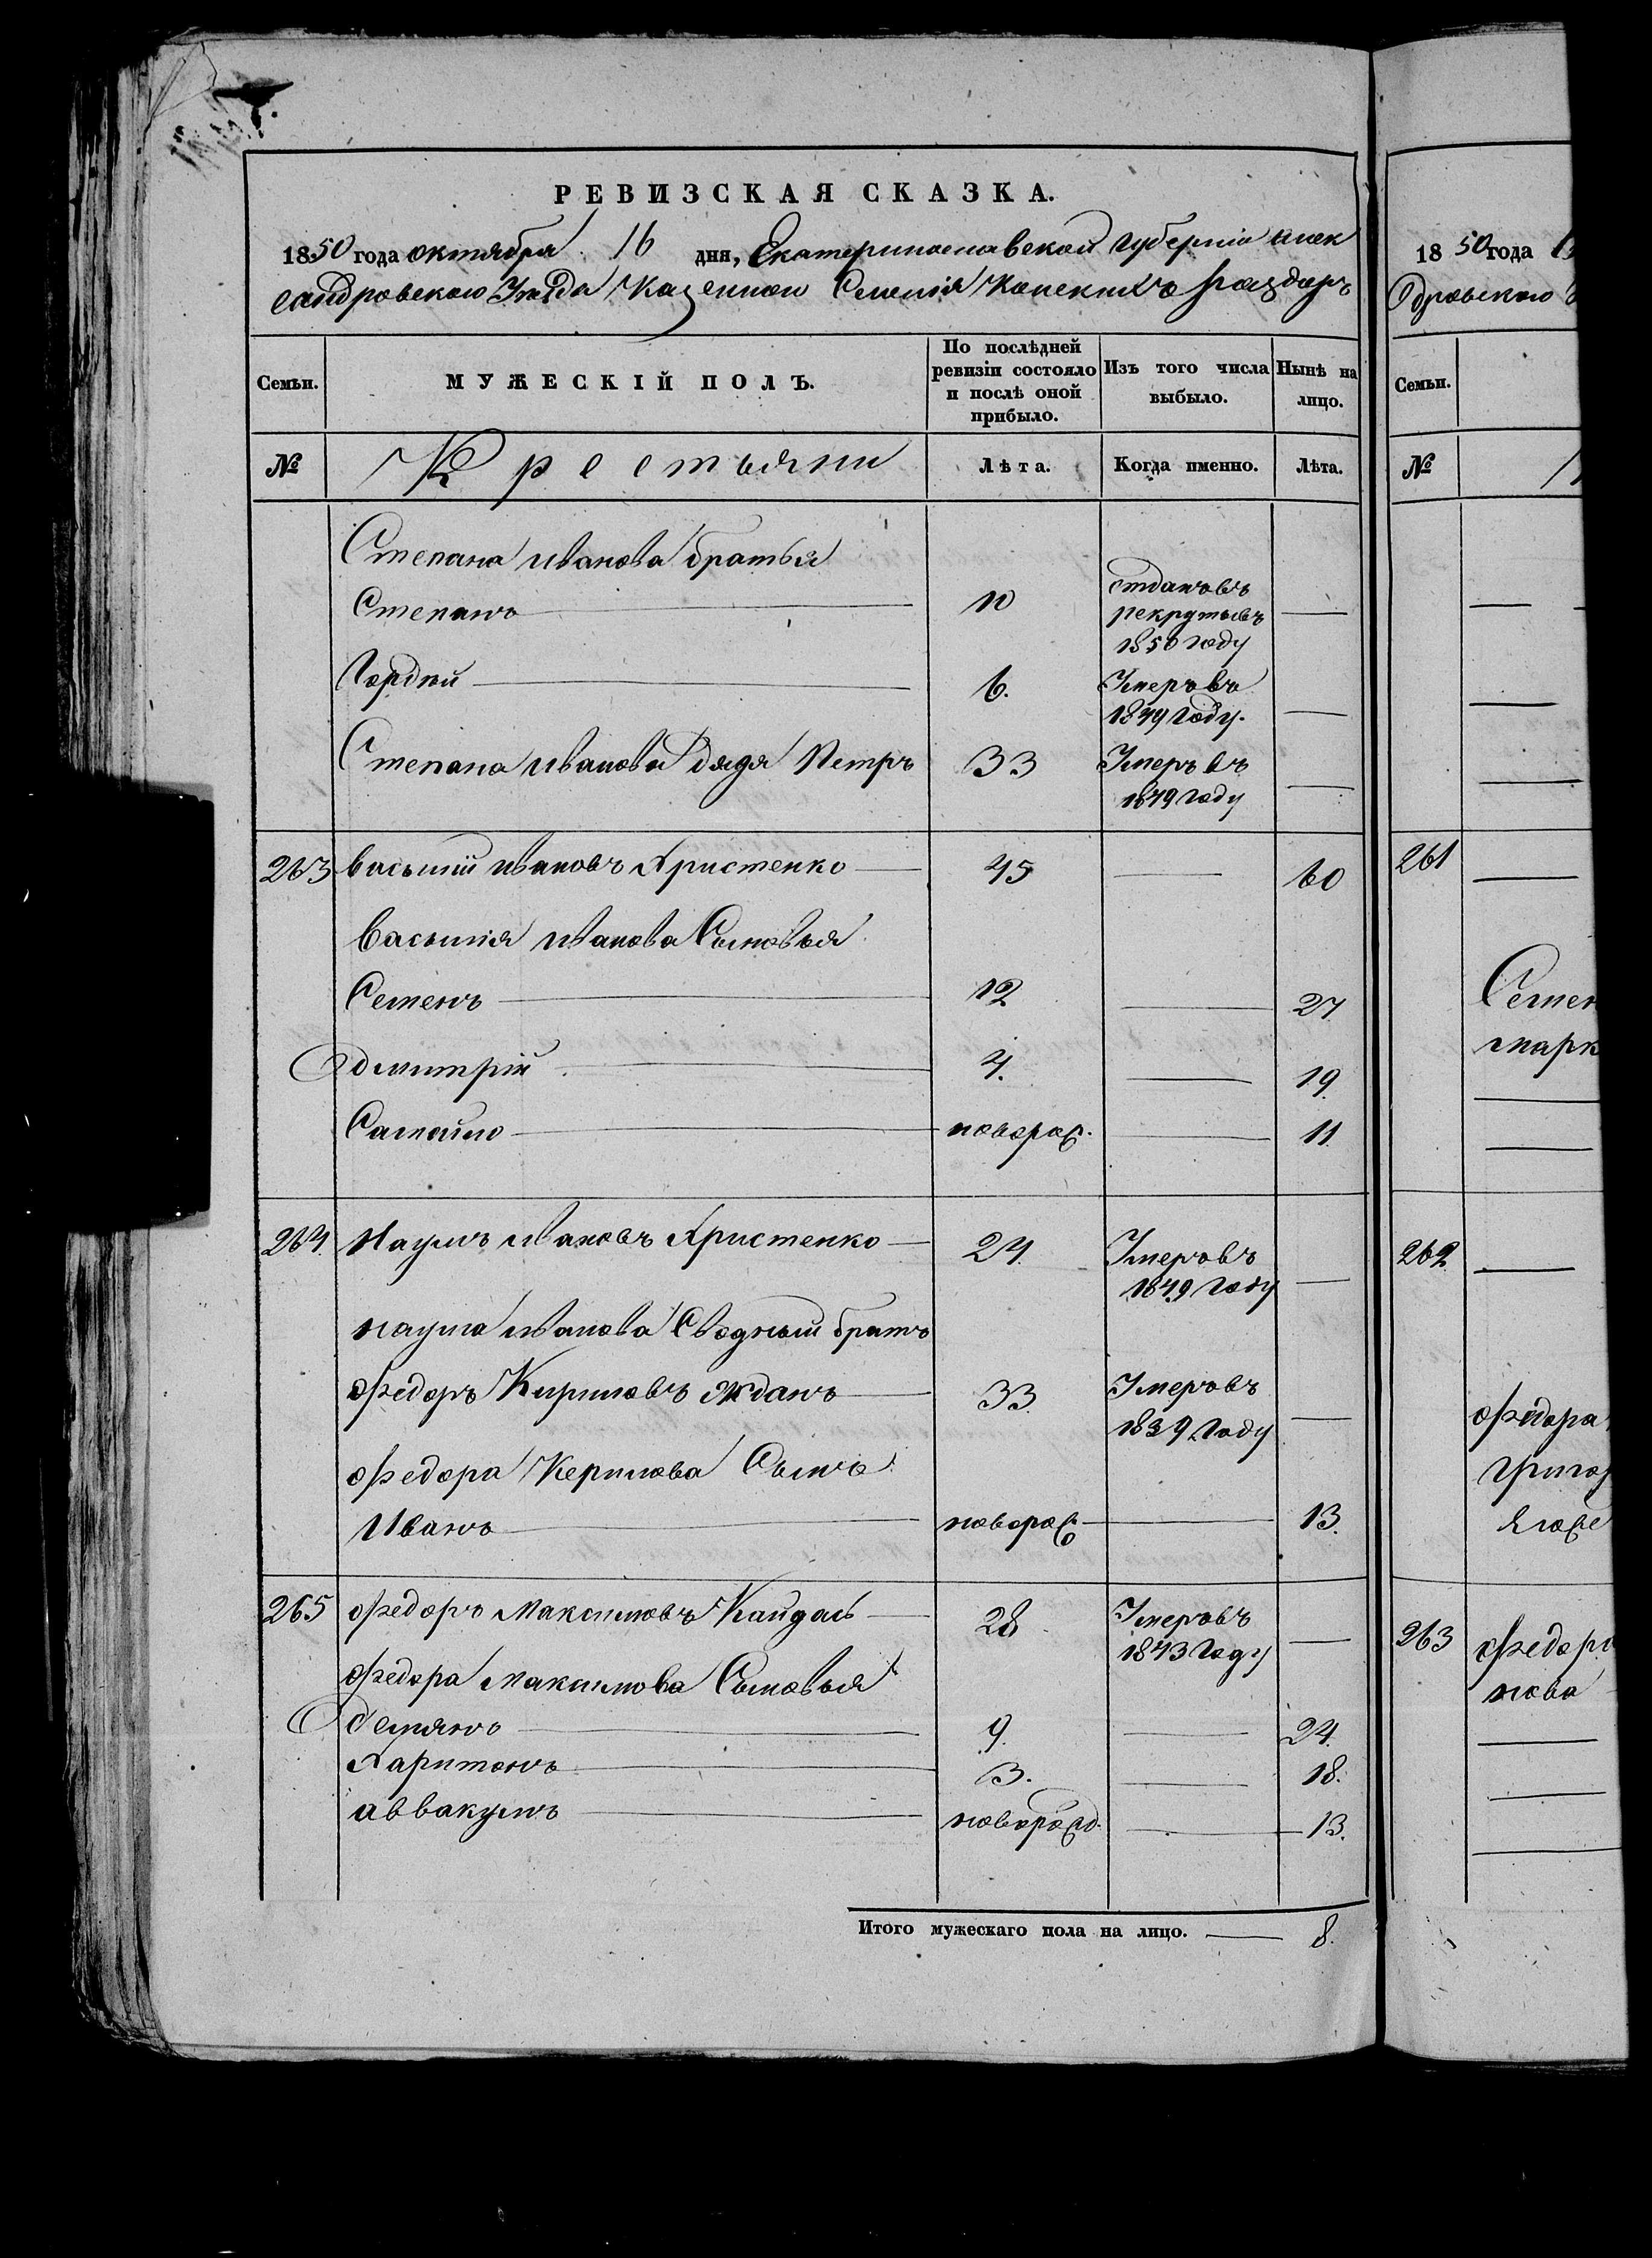 РЕВИЗСКАЯ СКАЗКА.
1850 года октября 16 дня, Екатеринославской губерніи Алек
сандровскаго Уезда Казенного Селенія Конскихъ Раздоръ
Семьи.
МУЖЕСКІЙ ПОЛЪ.
По послѣдней ревизіи состояло и послѣ оной прибыло.
Изъ того числа выбыло.
Нынѣ на лицо.
№ Крестьяни Лѣта. Когда именно. Лѣта.
Степана Иванова братья
Степанъ 10 отданъ въ рекруты въ 1850 году —
Гордѣй 6. Умеръ въ 1849 году. —
Степана Иванова дядя Петръ 33 Умеръ въ 1849 году —
263 Василій Ивановъ Христенко 45 — 60
Василія Иванова Сыновья
Семенъ 12 — 27
Дмитрій 4. — 19
Самойло новорож. — 11
264 Наумъ Ивановъ Христенко 24. Умеръ въ 1849 году —
Наума Иванова Сводный братъ
Федоръ Кириловъ Жданъ 33 Умеръ въ 1839 году —
Федора Керилова Сынъ
Иванъ новорож — 13.
265 Федоръ Максимовъ Кайдась 28 Умеръ въ 1843 году —
Федора Максимова Сыновья
Демянъ 9. — 24.
Харитонъ 3. — 18.
Аввакумъ новорожд. — 13.
Итого мужескаго пола на лицо. — 8.
1850 года
дровскаго
Семьи.
№
261
Семен
Марк
262
Федора
Григор
263 Федора
нова